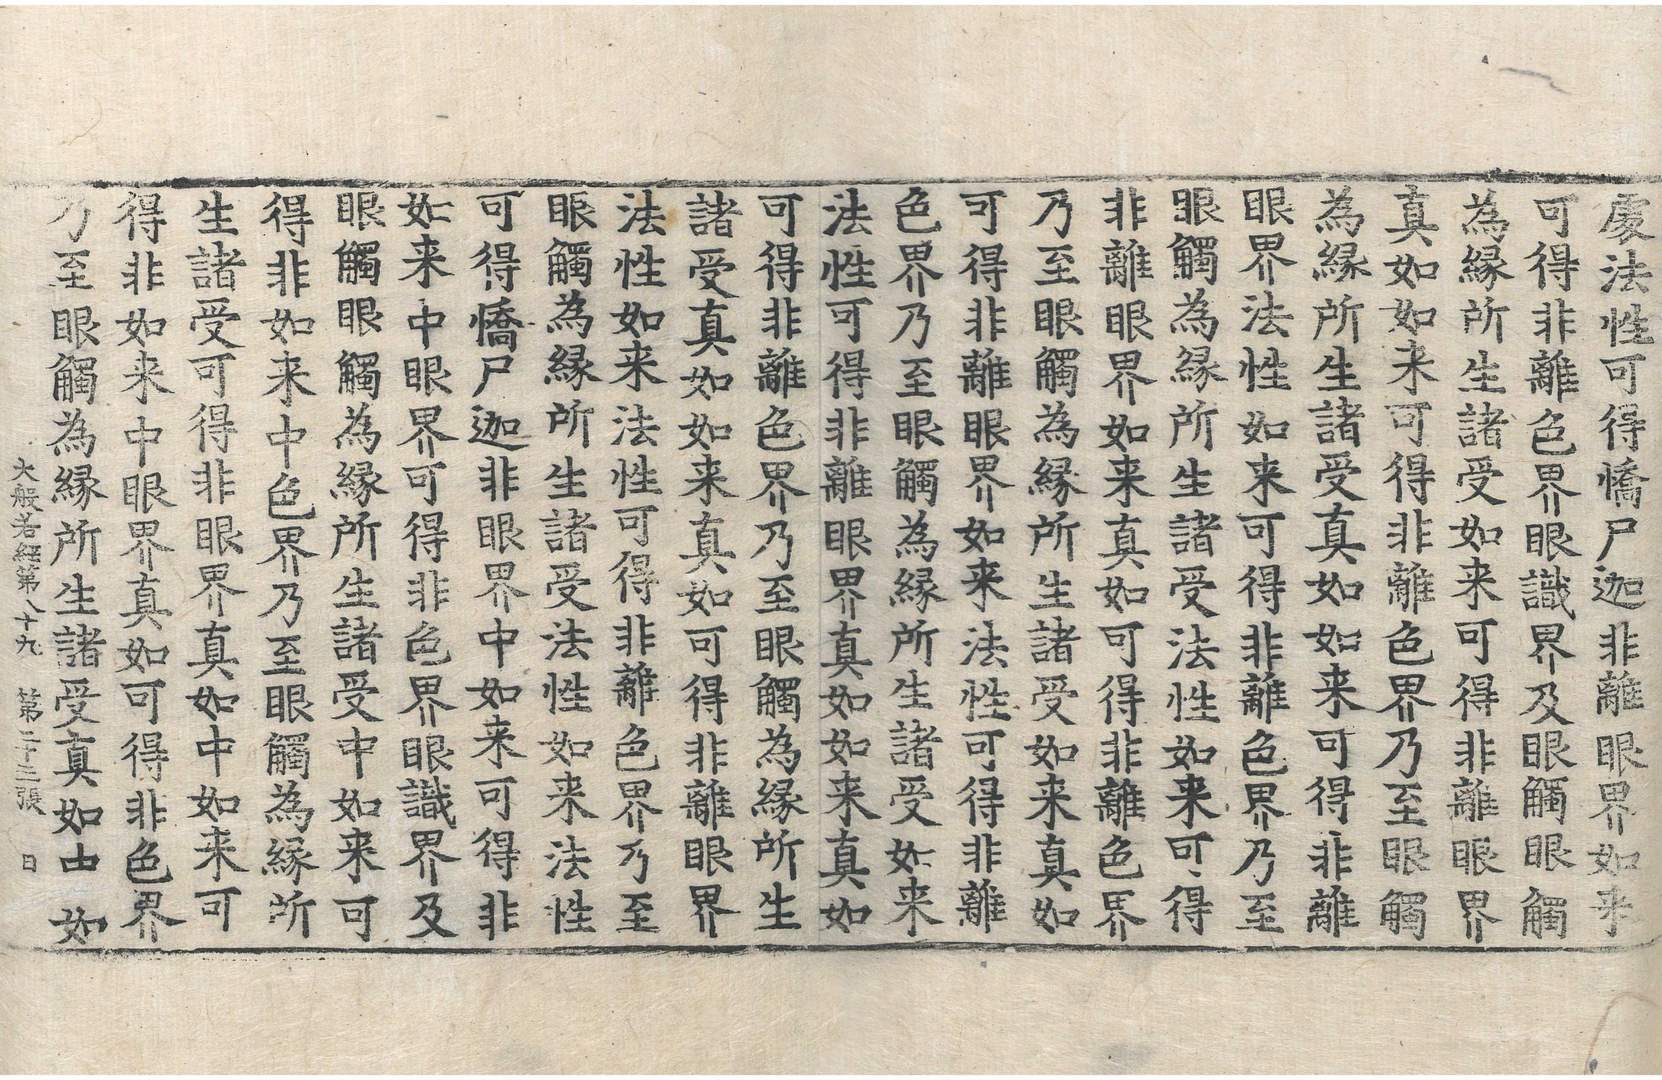 處法性可得憍尸迦非離眼界如来
可得非離色界眼識界及眼觸眼觸
為縁所生諸受如来可得非離眼界
真如如来可得非離色界乃至眼觸
為縁所生諸受真如如来可得非離
眼界法性如来可得非離色界乃至
眼觸為縁所生諸受法性如来可得
非離眼界如来真如可得非離色界
乃至眼觸為縁所生諸受如来真如
可得非離眼界如来法性可得非離
色界乃至眼觸為縁所生諸受如来
法性可得非離眼界真如如来真如
可得非離色界乃至眼觸為縁所生
諸受真如如来真如可得非離眼界
法性如来法性可得非離色界乃至
眼觸為縁所生諸受法性如来法性
可得憍尸迦非眼界中如来可得非
如来中眼界可得非色界眼識界及
眼觸眼觸為縁所生諸受中如来可
得非如来中色界乃至眼觸為縁所
生諸受可得非眼界真如中如来可
得非如来中眼界真如可得非色界
乃至眼觸為縁所生諸受真如中如
大般若經第八十九 第二十三張 日